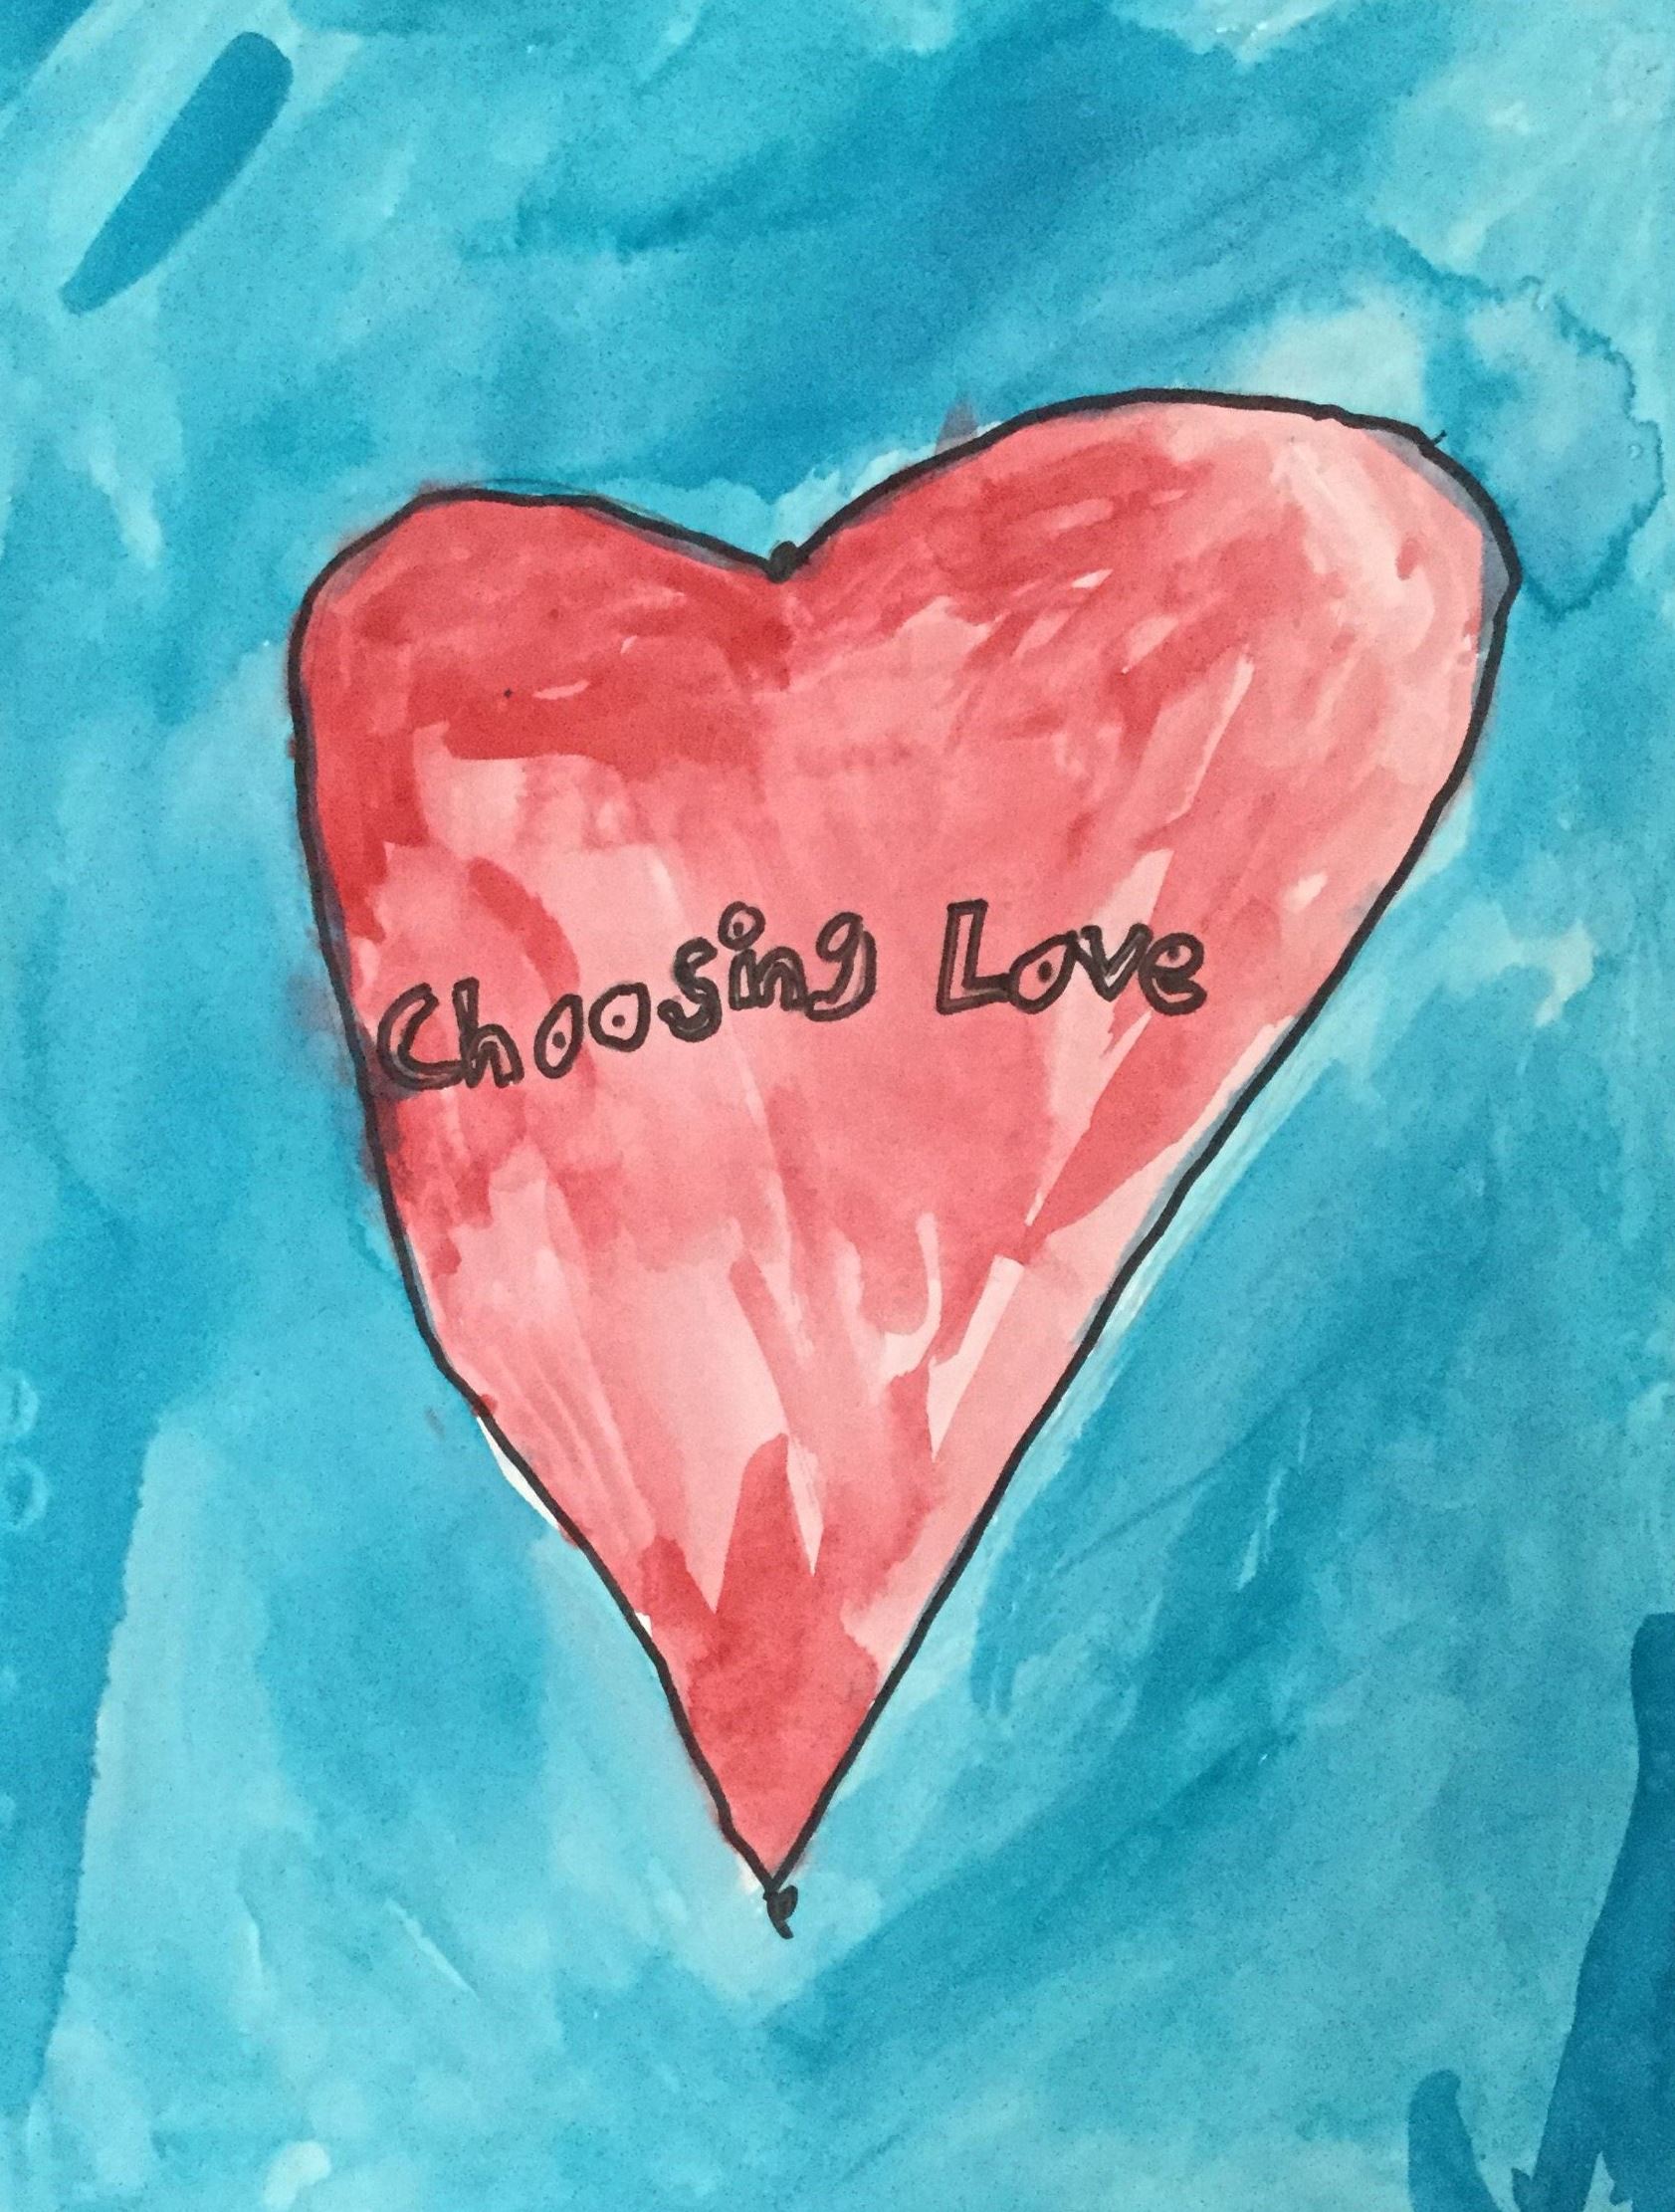 Choosing Love